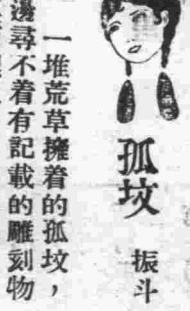 孤坟
振斗
一堆荒草擁着的孤坟，
邊尋不着有記載的雕刻物